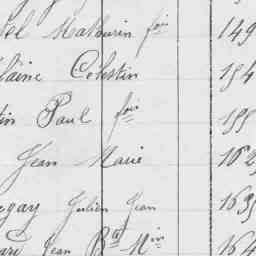 el Mathurin fois 149
laine Celestin 154
tin Paul fois 155
Jean Marie 162
egary Julien Jean 1635
ari Jean Bte Min 164